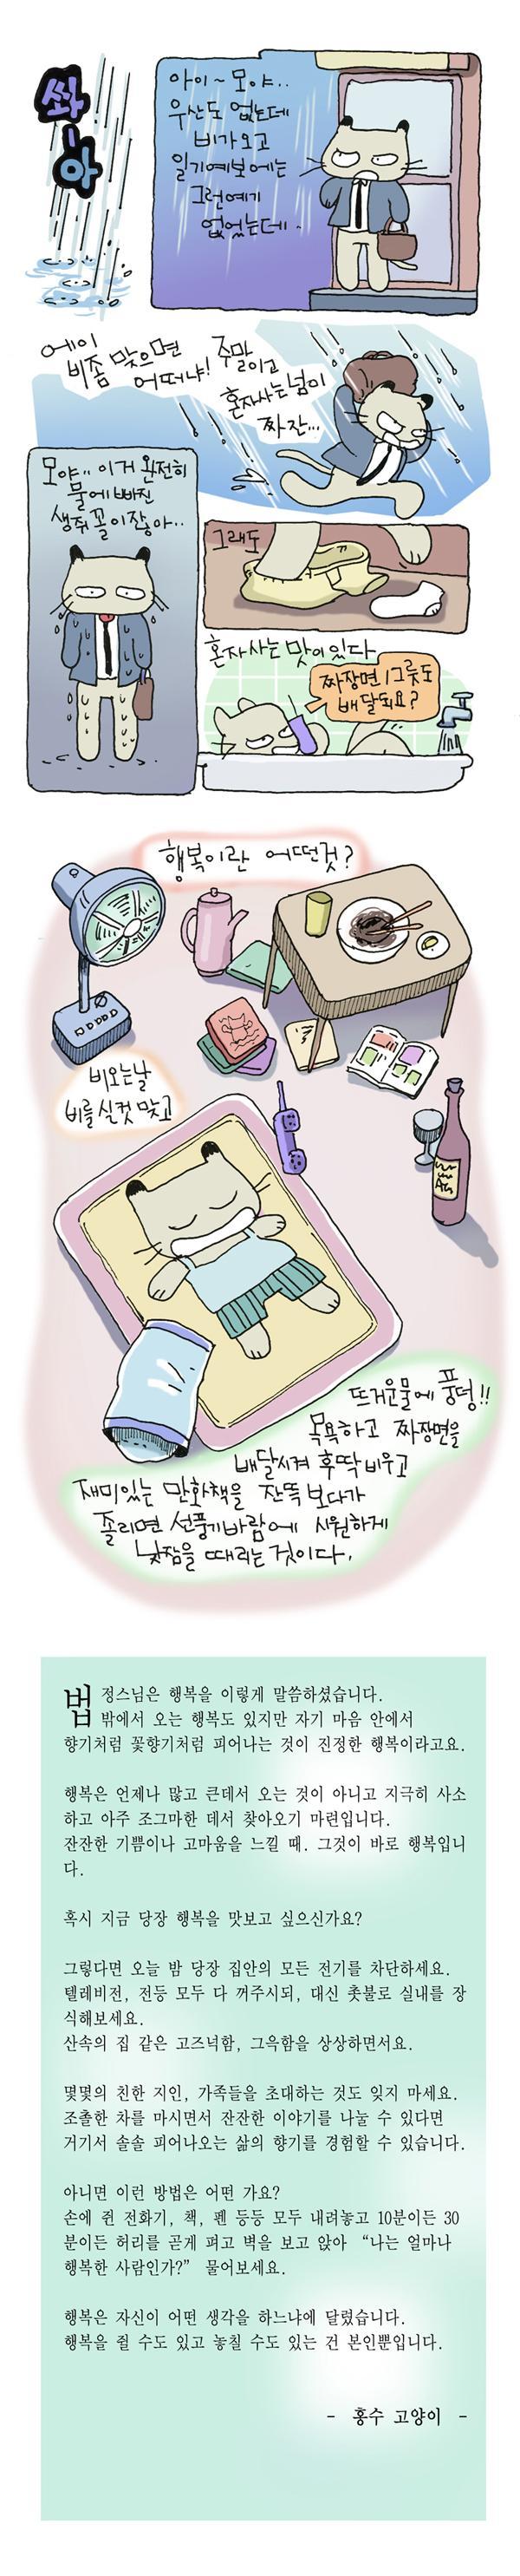 쏴-아
아이~모야..
우산도 없는데
비가오고
일기예보에는
그런얘기
없었는데~
에이
비좀 맞으면
어떠냐! 주말이고
혼자사는넘이
짜잔...
모야.. 이거 완전히
물에빠진
생쥐 꼴이잖아..
그래도
혼자사는 맛이 있다
짜장면 1그릇도
배달되요?
행복이란 어떤것?
비오는날
비를 실컷 맞고
뜨거운물에 풍덩!!
목욕하고 짜장면을
배달시켜 후딱 비우고
재미있는 만화책을 잔뜩 보다가
졸리면 선풍기바람에 시원하게
낮잠을 때리는 것이다.
법정스님은 행복을 이렇게 말씀하셨습니다.
밖에서 오는 행복도 있지만 자기 마음 안에서
향기처럼 꽃향기처럼 피어나는 것이 진정한 행복이라고요.
행복은 언제나 많고 큰데서 오는 것이 아니고 지극히 사소
하고 아주 조그마한 데서 찾아오기 마련입니다.
잔잔한 기쁨이나 고마움을 느낄 때. 그것이 바로 행복입니
다.
혹시 지금 당장 행복을 맛보고 싶으신가요?
그렇다면 오늘 밤 당장 집안의 모든 전기를 차단하세요.
텔레비전, 전등 모두 다 꺼주시되, 대신 촛불로 실내를 장
식해보세요.
산속의 집 같은 고즈넉함, 그윽함을 상상하면서요.
몇몇의 친한 지인, 가족들을 초대하는 것도 잊지 마세요.
조촐한 차를 마시면서 잔잔한 이야기를 나눌 수 있다면
거기서 솔솔 피어나오는 삶의 향기를 경험할 수 있습니다.
아니면 이런 방법은 어떤 가요?
손에 쥔 전화기, 책, 펜 등등 모두 내려놓고 10분이든 30
분이든 허리를 곧게 펴고 벽을 보고 앉아 “나는 얼마나
행복한 사람인가?” 물어보세요.
행복은 자신이 어떤 생각을 하느냐에 달렸습니다.
행복을 쥘 수도 있고 놓칠 수도 있는 건 본인뿐입니다.
- 홍수 고양이 -